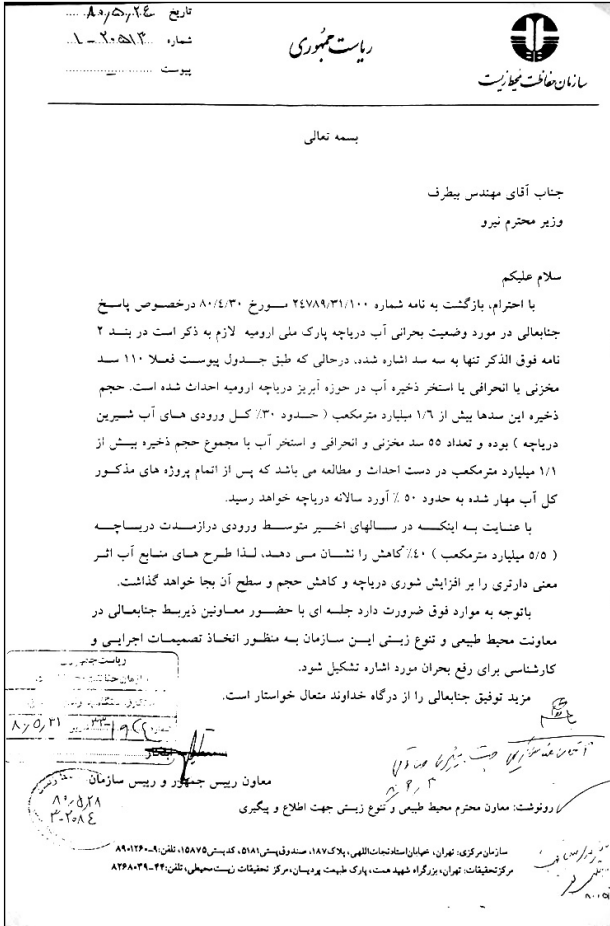 تاریخ ۸۰٫۵٫۲٤
شماره ۱-۲۰۵۱۳
پیوست
ریاست جمهوری
سازمان حفاظت محیط زیست
بسمه تعالی
جناب آقای مهندس بیطرف
وزیر محترم نیرو
سلام علیکم
با احترام، بازگشت به نامه شماره ۲٤۷۸۹/۳۱/۱۰۰ مـورخ ۸۰/٤/۳۰ درخصوص پاسخ
جنابعالی در مورد وضعیت بحرانی آب دریاچه پارک ملی ارومیه لازم به ذکر است در بند ۲
نامه فوق الذکر تنها به سه سد اشاره شده، درحالی که طبق جـدول پیوست فعلا ۱۱۰ سـد
مخزنی یا انحرافی یا استخر ذخیره آب در حوزه آبریز دریاچه ارومیه احداث شده است. حجم
ذخیره این سدها بیش از ۱/٦ میلیارد مترمکعب ( حـدود ۳۰٪ کـل ورودی هـای آب شـیرین
دریاچه ) بوده و تعداد ۵۵ سد مخزنی و انحرافی و استخر آب با مجموع حجم ذخیره بیـش از
۱/۱ میلیارد مترمکعب در دست احداث و مطالعه می باشد که پس از اتمام پروژه های مذکـور
کل آب مهار شده به حدود ۵۰ ٪ آورد سالانه دریاچه خواهد رسید.
با عنـایت بـه اینکـه در سـالهای اخـیر متوسـط ورودی درازمـدت دریـاچـه
( ۵/۵ میلیارد مترمکعب ) ٤۰٪ کاهش را نشـان مـی دهـد، لـذا طـرح هـای منـابع آب اثـر
معنی دارتری را بر افزایش شوری دریاچه و کاهش حجم و سطح آن بجا خواهد گذاشت.
باتوجه به موارد فوق ضرورت دارد جلسه ای با حضـور معـاونین ذیربـط جنابعـالی در
معاونت محیط طبیعی و تنوع زیستی ایـن سـازمان بـه منظـور اتخـاذ تصمیمـات اجرایـی و
کارشناسی برای رفع بحران مورد اشاره تشکیل شود.
مزید توفیق جنابعالی را از درگاه خداوند متعال خواستار است.
ریاست جمهوری
۸۰٫۵٫۲۱
معاون رییس جمهور و رییس سازمان
۸۰٫۵٫۲۸
۳-۲۰۸٤
رونوشت: معاون محترم محیط طبیعی و تنوع زیستی جهت اطلاع و پیگیری
سازمان مرکزی: تهران، خیابان استاد نجات‌اللهی، پلاک ۱۸۷، صندوق پستی ۵۱۸۱، کدپستی ۱۵۸۷۵، تلفن: ۹-۸۹۰۱۲۶۰
مرکز تحقیقات: تهران، بزرگراه شهید همت، پارک طبیعت پردیسان، مرکز تحقیقات زیست محیطی، تلفن: ۴۴-۸۲۶۸۰۳۹